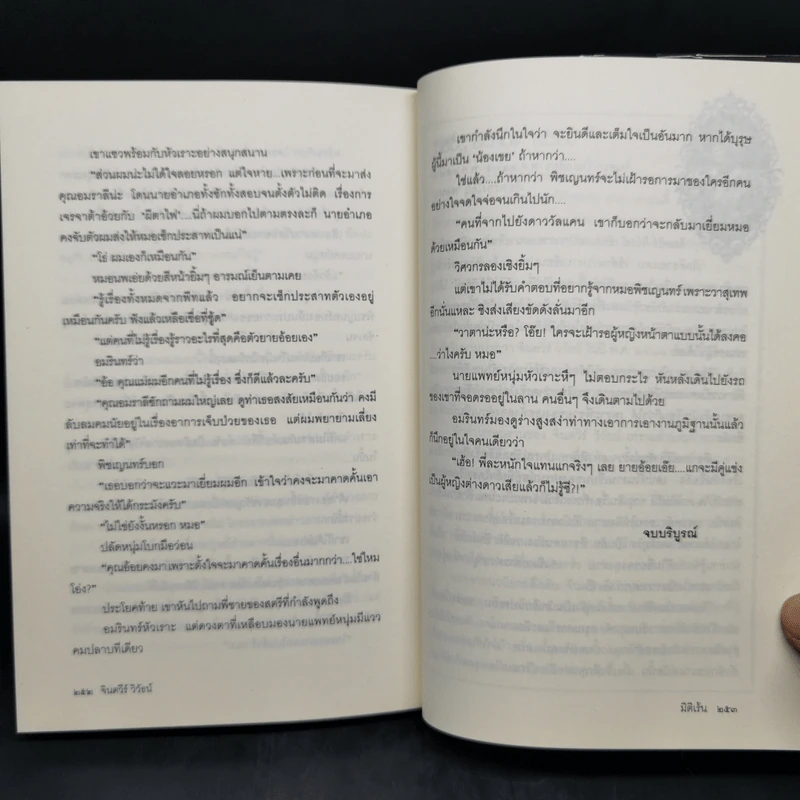 เขาแซวพร้อมกับหัวเราะอย่างสนุกสนาน
“ส่วนผมน่ะไม่ได้ใจลอยหรอก แต่ใจหาย...เพราะก่อนที่จะมาส่ง
คุณอมราลีน่ะ โดนนายอำเภอทั้งซักทั้งสอบจนตั้งตัวไม่ติด เรื่องการ
เจรจาด้าอ้วยกับ ‘ผีตาไฟ’...นี่ถ้าผมบอกไปตามตรงละก็ นายอำเภอ
คงจับตัวผมส่งให้หมอเช็กประสาทเป็นแน่”
“โธ่ ผมเองก็เหมือนกัน”
หมอนพเอ่ยด้วยสีหน้ายิ้มๆ อารมณ์เย็นตามเคย
“รู้เรื่องทั้งหมดจากพีทแล้ว อยากจะเช็กประสาทตัวเองอยู่
เหมือนกันครับ ฟังแล้วเหลือเชื่อที่ซู้ด”
“แต่คนที่ไม่รู้เรื่องรู้ราวอะไรที่สุดคือตัวยายอ้อยเอง”
อมรินทร์ว่า
“อ้อ คุณแม่ผมอีกคนที่ไม่รู้เรื่อง ซึ่งก็ดีแล้วละครับ”
“คุณอมราลีซักถามผมใหญ่เลย ดูท่าเธอสงสัยเหมือนกันว่า คงมี
ลับลมคมนัยอยู่ในเรื่องอาการเจ็บป่วยของเธอ แต่ผมพยายามเลี่ยง
เท่าที่จะทำได้”
พิชเญนทร์บอก
“เธอบอกว่าจะแวะมาเยี่ยมผมอีก เข้าใจว่าคงจะมาคาดคั้นเอา
ความจริงให้ได้กระมังครับ”
“ไม่ใช่ยังงั้นหรอก หมอ”
ปลัดหนุ่มโบกมือว่อน
“คุณอ้อยคงมาเพราะตั้งใจจะมาคาดคั้นเรื่องอื่นมากกว่า....ใช่ไหม
โอ่ง?”
ประโยคท้าย เขาหันไปถามพี่ชายของสตรีที่กำลังพูดถึง
อมรินทร์หัวเราะ แต่ดวงตาที่เหลือบมองนายแพทย์หนุ่มมีแวว
คมปลาบทีเดียว
๒๕๒ จินตวีร์ วิวัธน์
เขากำลังนึกในใจว่า จะยินดีและเต็มใจเป็นอันมาก หากได้บุรุษ
ผู้นี้มาเป็น ‘น้องเขย’ ถ้าหากว่า....
ใช่แล้ว....ถ้าหากว่า พิชเญนทร์จะไม่เฝ้ารอการมาของใครอีกคน
อย่างใจจดใจจ่อจนเกินไปนัก....
“คนที่จากไปยังดาววัลแคน เขาก็บอกว่าจะกลับมาเยี่ยมหมอ
ด้วยเหมือนกัน”
วิศวกรลองเชิงยิ้มๆ
แต่เขาไม่ได้รับคำตอบที่อยากรู้จากหมอพิชเญนทร์ เพราะวาสุเทพ
อีกนั่นแหละ ชิงส่งเสียงขัดดังลั่นมาอีก
“วาตาน่ะหรือ? โอ๊ย! ใครจะเฝ้ารอผู้หญิงหน้าตาแบบนั้นได้ลงคอ
...ว่าไงครับ หมอ”
นายแพทย์หนุ่มหัวเราะหึๆ ไม่ตอบกระไร หันหลังเดินไปยังรถ
ของเขาที่จอดรออยู่ในลาน คนอื่นๆ จึงเดินตามไปด้วย
อมรินทร์มองดูร่างสูงสง่าท่าทางเอาการเอางานภูมิฐานนั้นแล้ว
ก็นึกอยู่ในใจคนเดียวว่า
“เฮ้อ! พี่ละหนักใจแทนแกจริงๆ เลย ยายอ้อยเอ๊ย....แกจะมีคู่แข่ง
เป็นผู้หญิงต่างดาวเสียแล้วก็ไม่รู้ซี?!”
จบบริบูรณ์
มิติเร้น ๒๕๓